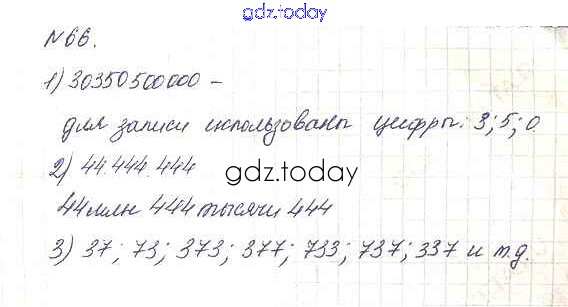 gdz.today
№66.
1) 30350500000 –
для записи использованы цифры: 3; 5; 0
2) 44.444.444
gdz.today
44 млн 444 тысячи 444
3) 37; 73; 373; 377; 733; 737; 337 и т.д.